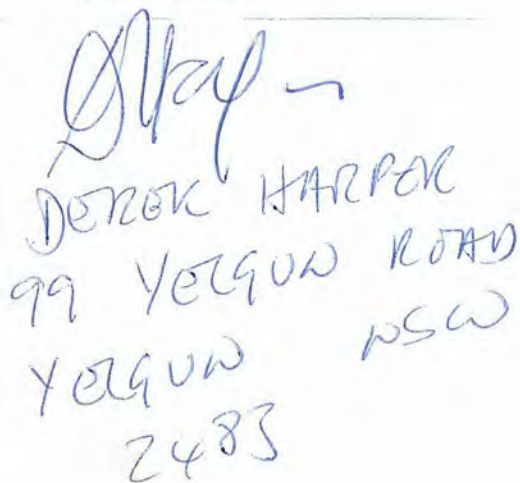 DEREK HARPER
99 YELGUN ROAD
YELGUN NSW
2483